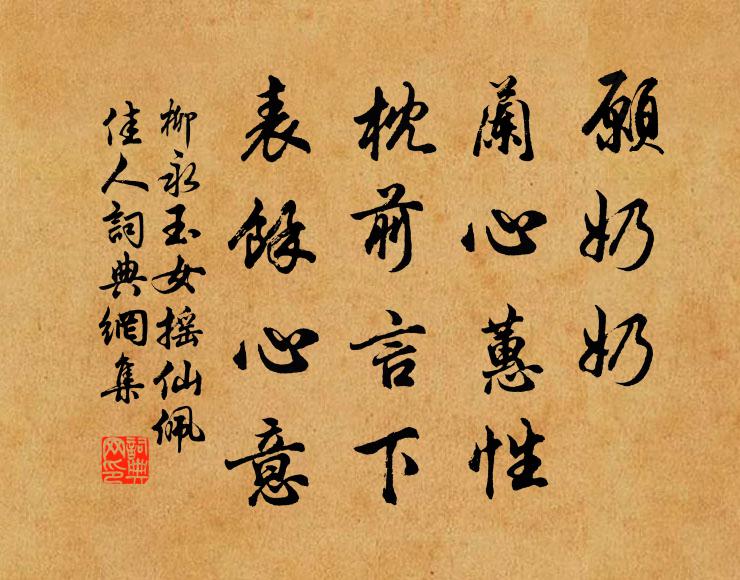 願奶奶
蘭心蕙性
枕前言下
表餘心意
柳永玉女摇仙佩
佳人詞典網集
詞典網印